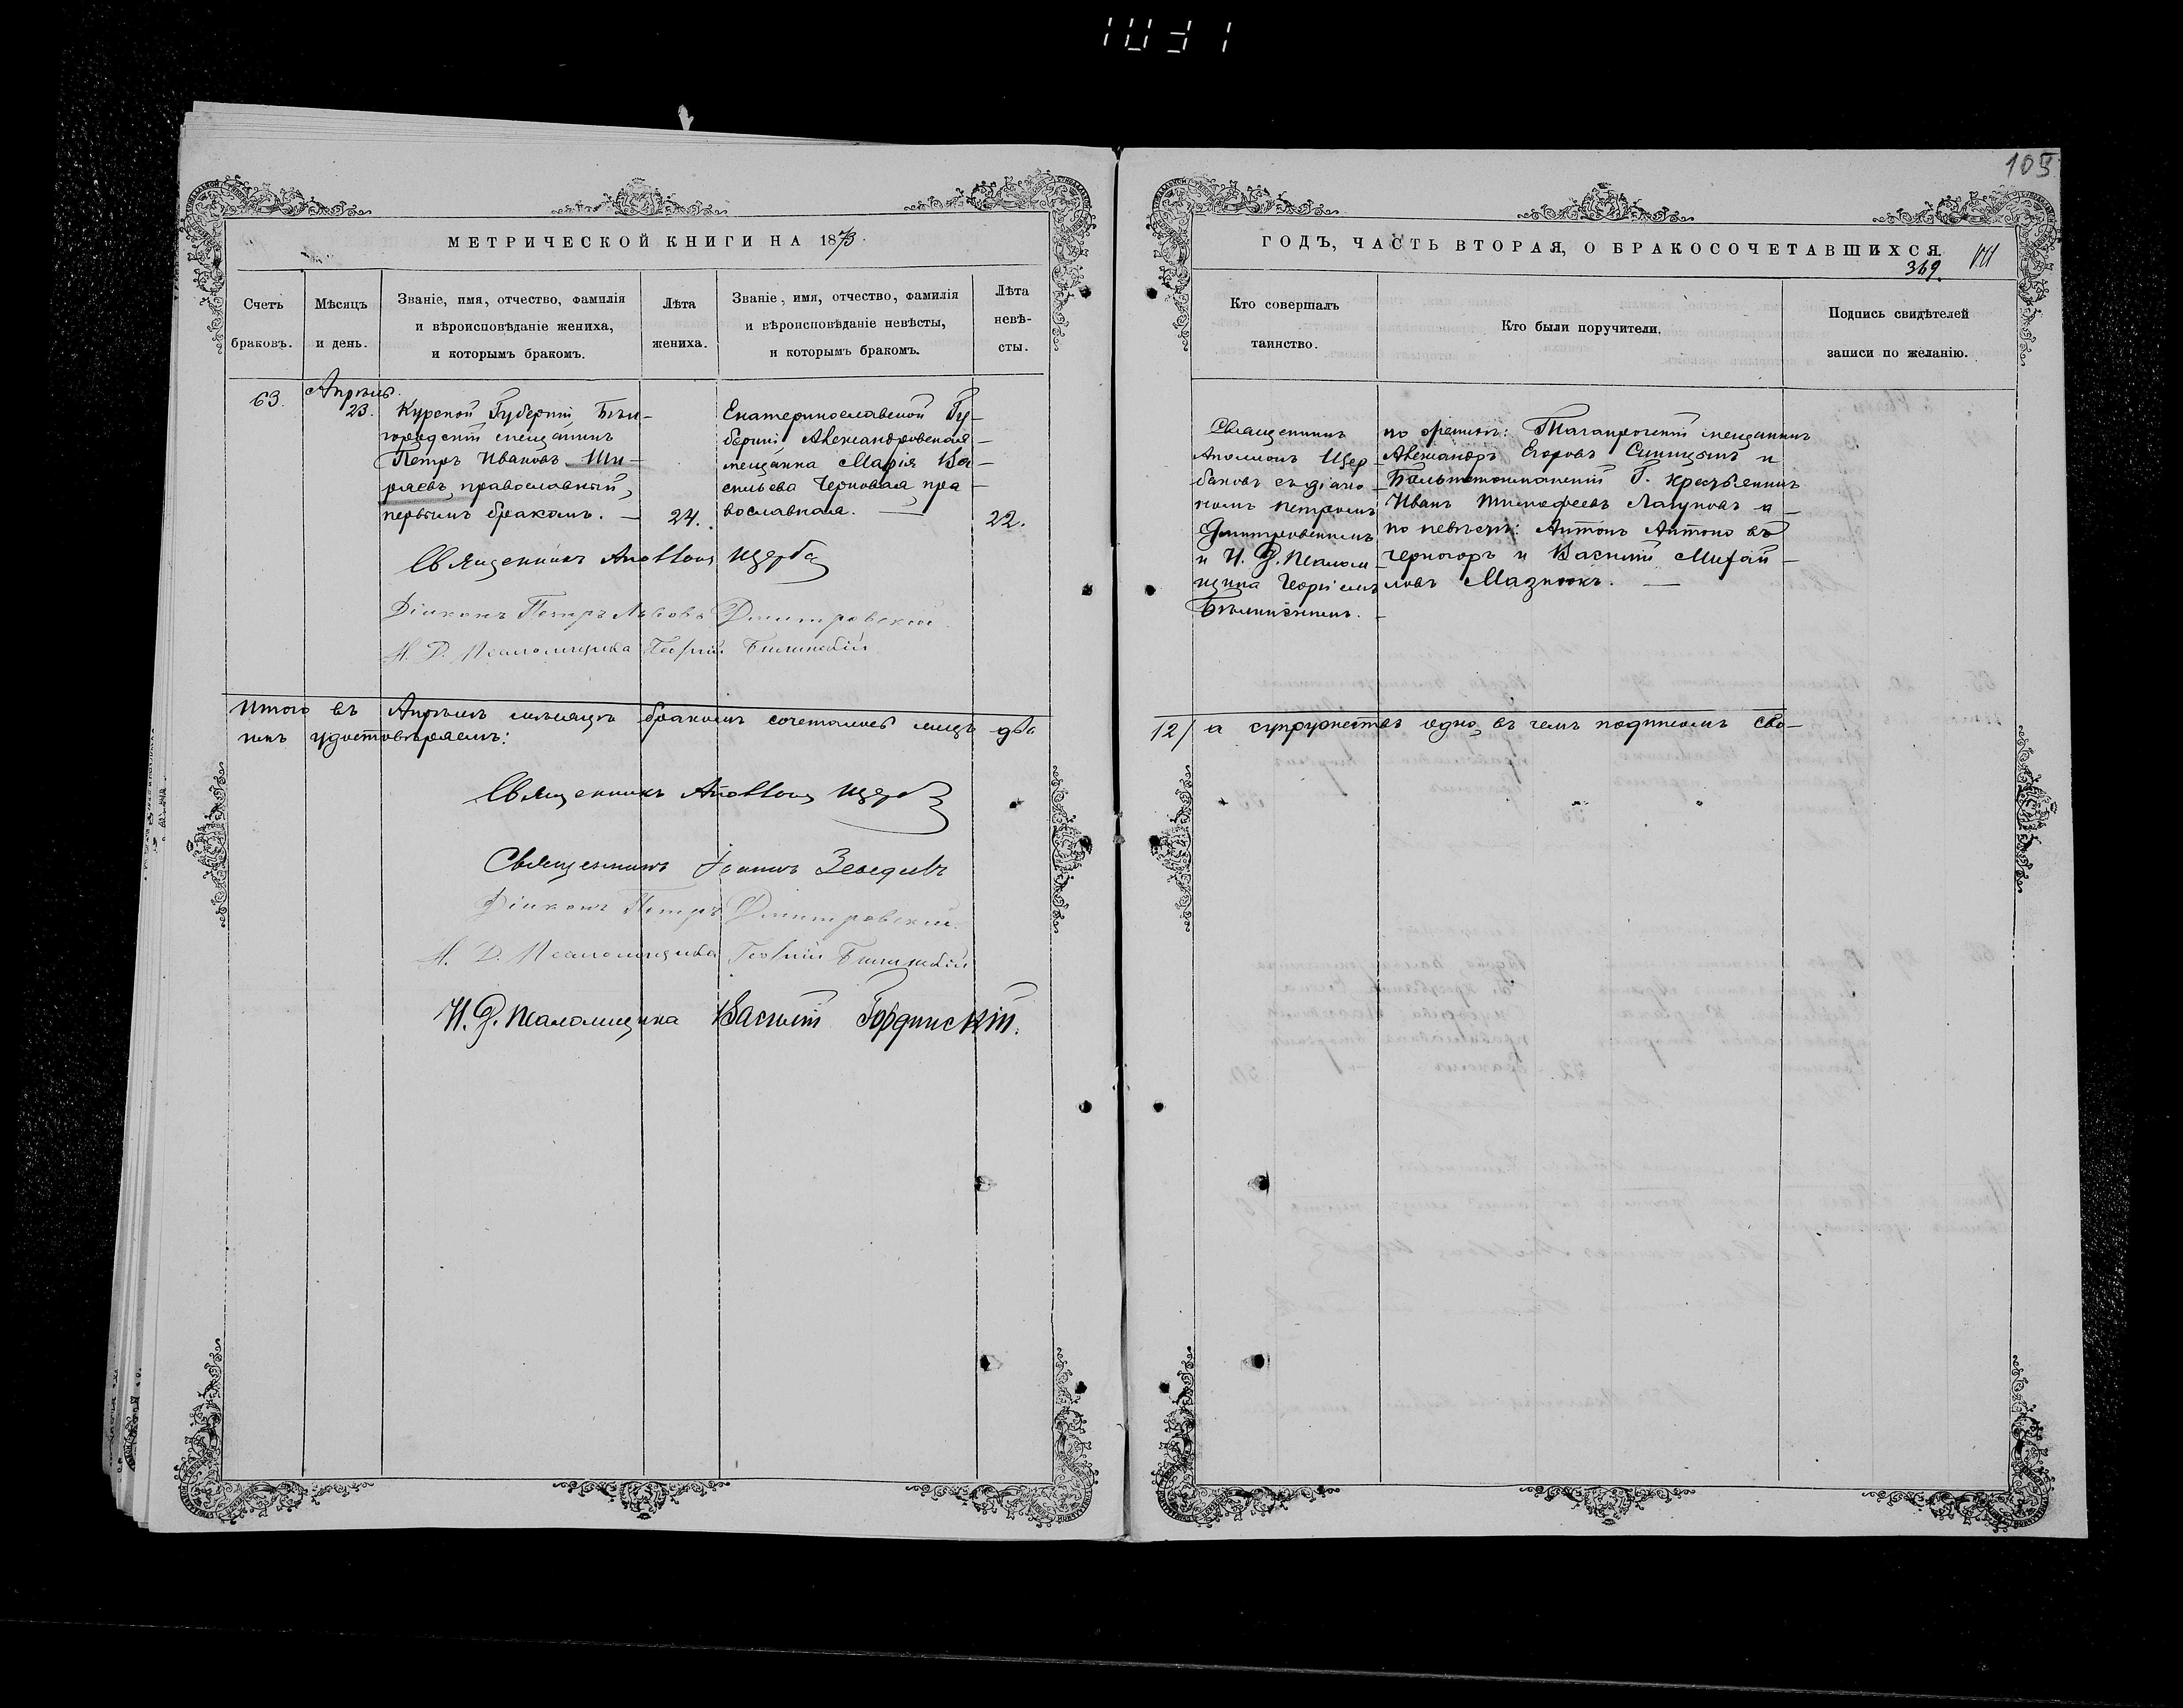 1031
МЕТРИЧЕСКОЙ КНИГИ НА 1873.
Счетъ браковъ.
Мѣсяцъ и день.
Званіе, имя, отчество, фамилія
и вѣроисповѣданіе жениха,
и которымъ бракомъ.
Лѣта жениха.
Званіе, имя, отчество, фамилія
и вѣроисповѣданіе невѣсты,
и которымъ бракомъ.
Лѣта
невѣ-
сты.
63.
Апрѣль.
23.
Курской Губерніи Бѣл-
городскій мещанинъ
Петръ Ивановъ Ши-
ряевъ, православный,
первымъ бракомъ. —
24.
Екатеринославской Гу-
берніи Александровская
мещанка Марія Ва-
сильева Черновая, пра-
вославная. —
22.
Священникъ Аполлонъ Щерба
Діаконъ Петръ Дмитровскій.
И. Д. Псаломщика Георгій
Итого въ Апрѣлѣ мѣсяцѣ бракомъ сочеталось лицъ два
удостовѣряемъ:
Священникъ Аполлонъ Щерб
Священникъ Іоаннъ
Діаконъ Петръ Дмитровскій.
И. Д. Псаломщика Георгій
И. Д. Псаломщика Василій Гордински́й.
105
ГОДЪ, ЧАСТЬ ВТОРАЯ, О БРАКОСОЧЕТАВШИХСЯ.
369.
Кто совершалъ
таинство.
Кто были поручители.
Подпись свидѣтелей
записи по желанію.
Священникъ
Аполлонъ Щер-
баковъ съ діако-
номъ Петромъ
Дмитровскимъ
и И. Д. Псалом-
щика Георгіемъ
по женихѣ: Таганрогскій мещанинъ
Александръ Егоровъ Синицынъ и
Г. крестьянинъ
Иванъ Тимофеевъ Лагуновъ а
по невѣстѣ: Антонъ Антоновъ
Черногоръ и Василій Михай-
ловъ Мазнюкъ. —
/2/ а супружествъ одно, въ чемъ подписомъ сво-